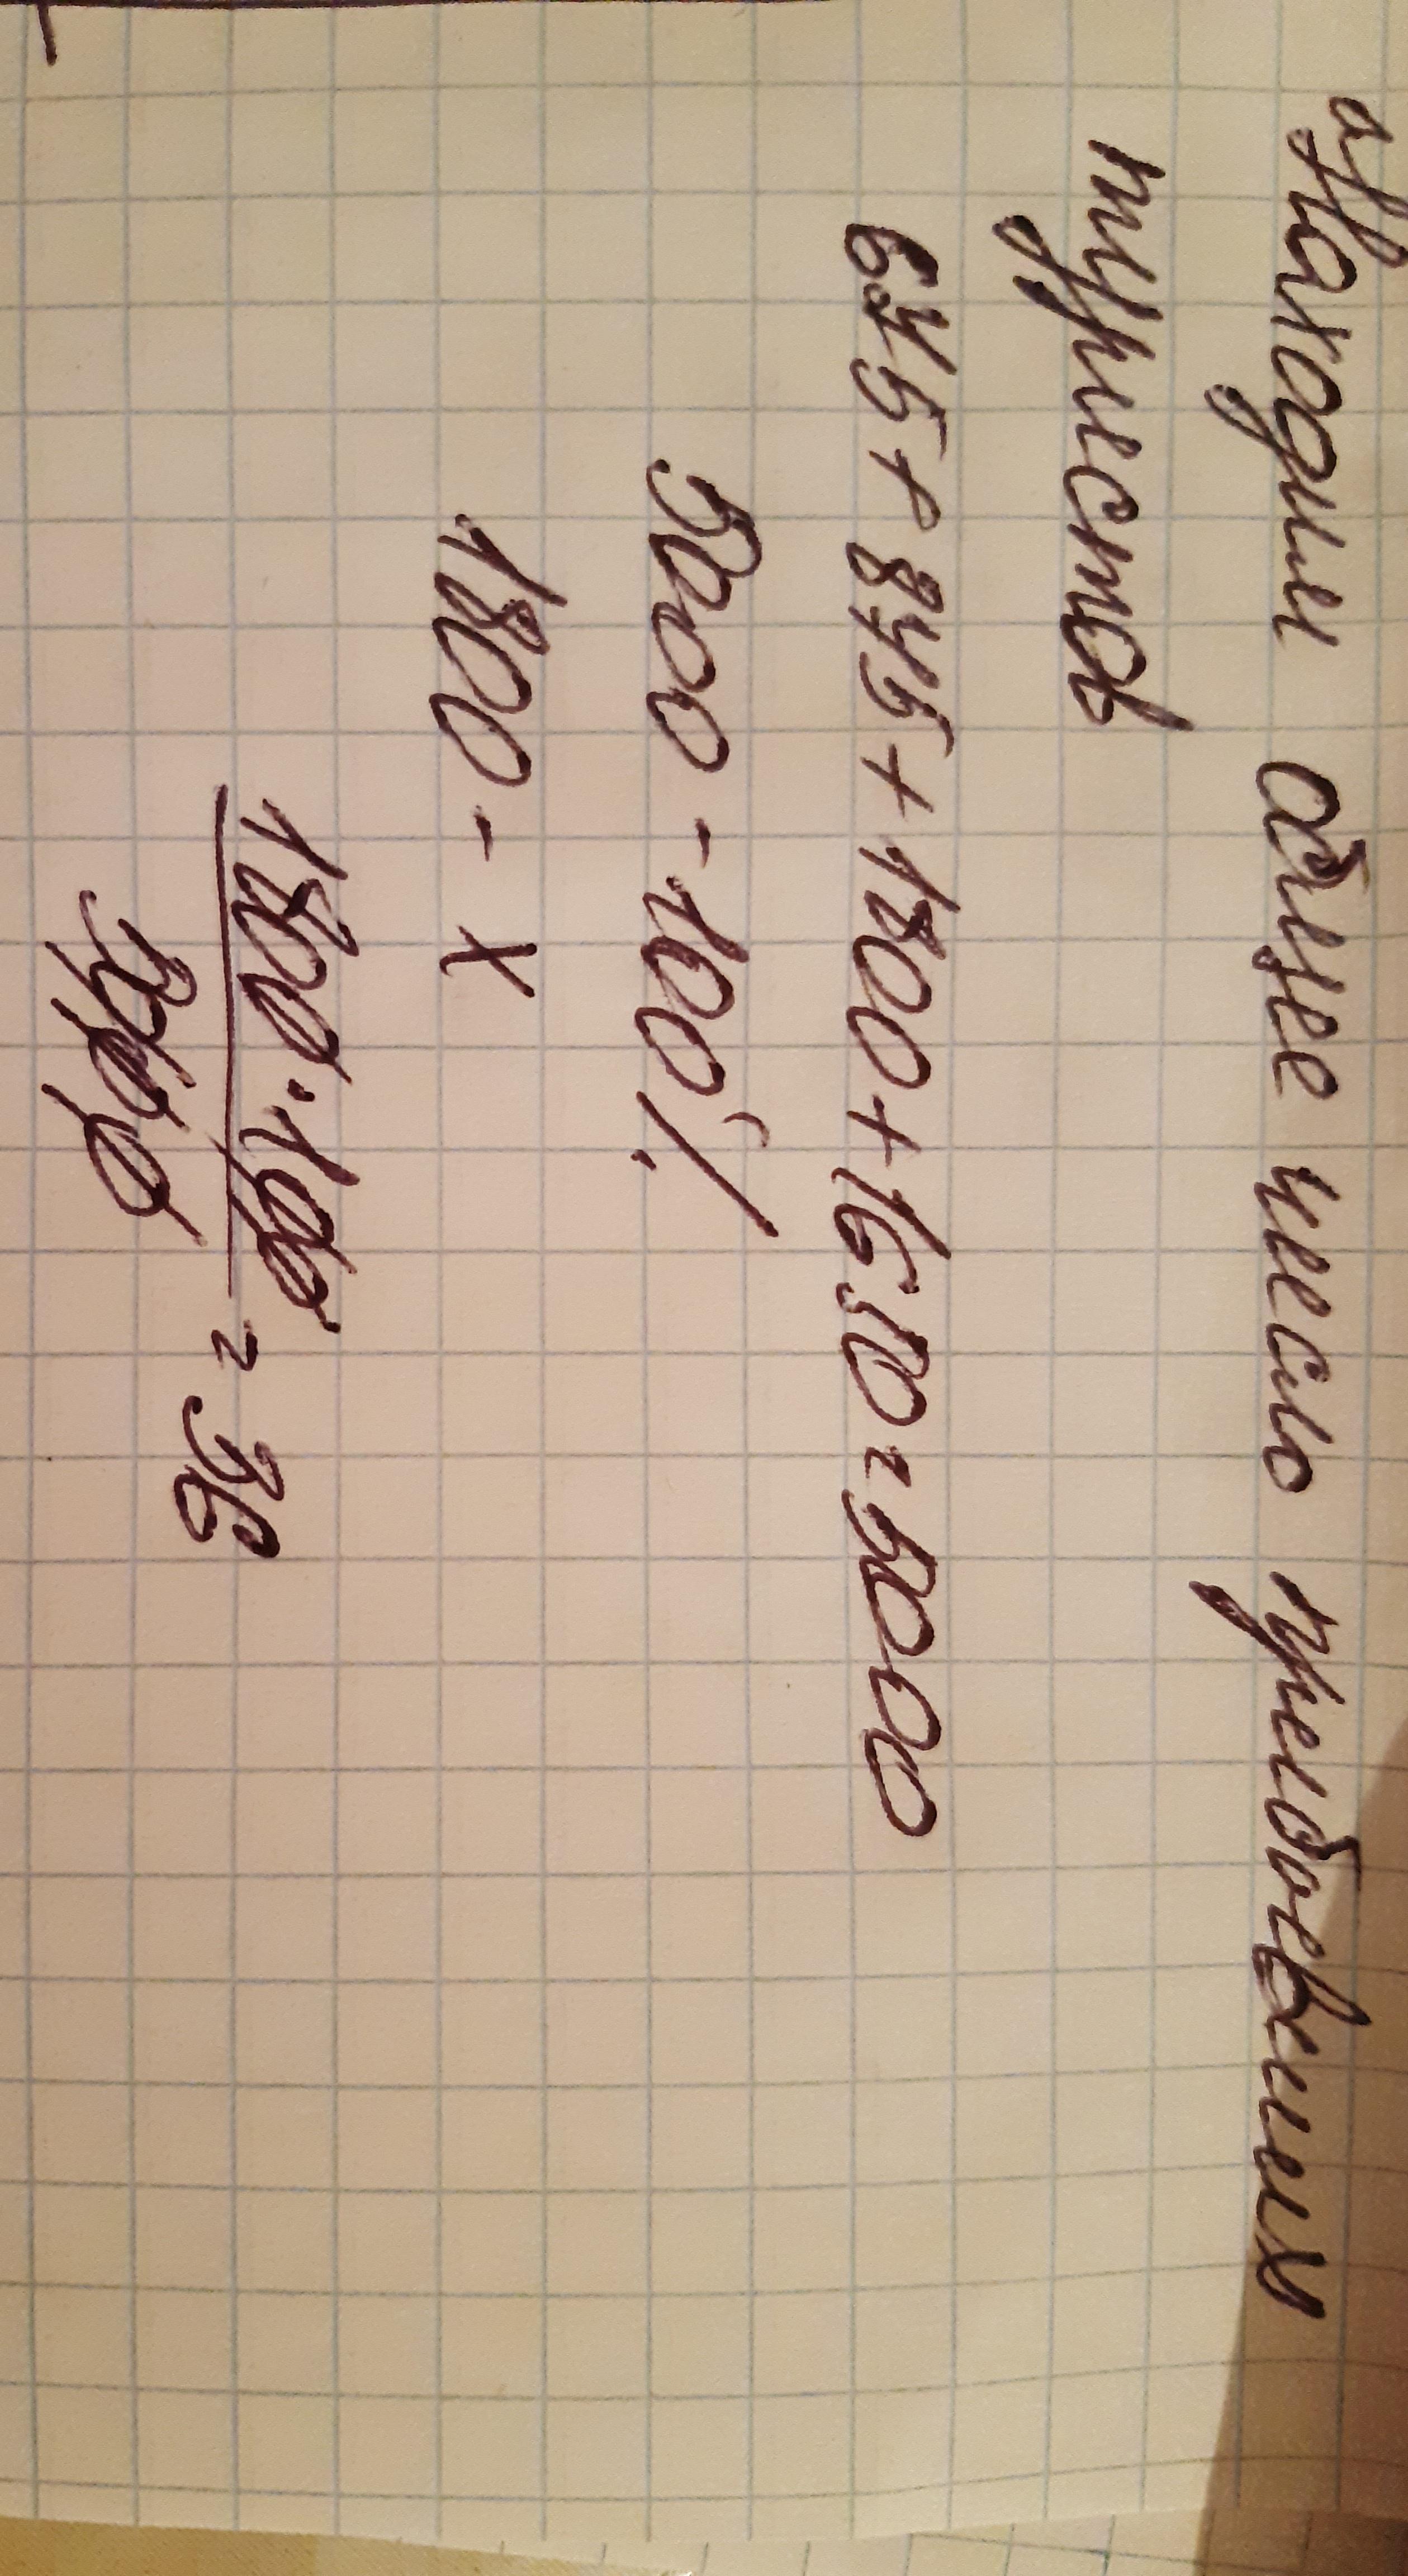 Находим общее число прибывших
туристов
675+875+1800+1650=5000
5000 - 100%
1800 - x
1800·100
5000
= 36